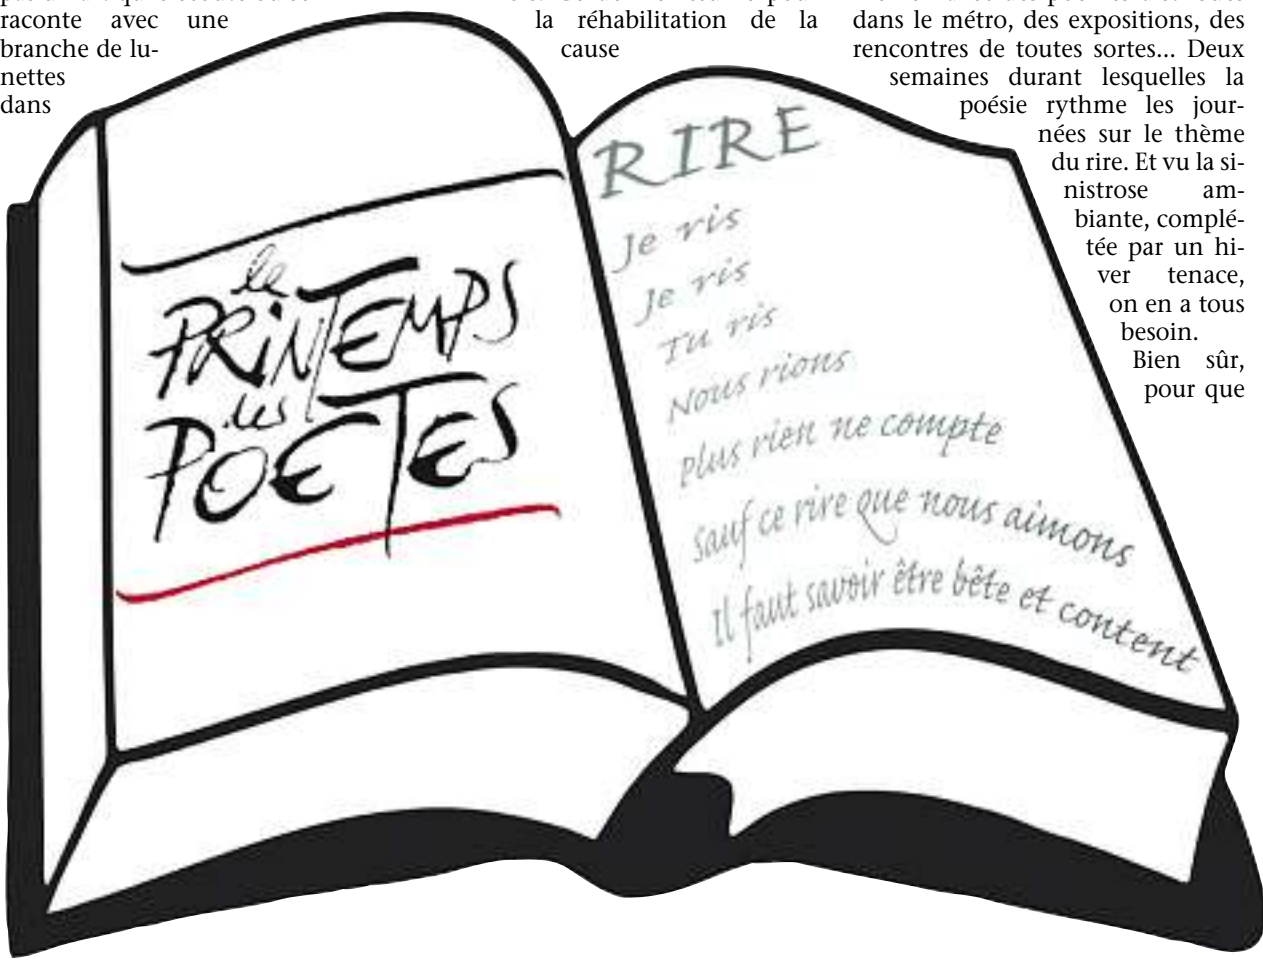 raconte avec une
branche de lu-
nettes
dans
la réhabilitation de la
cause
dans le métro, des expositions, des
rencontres de toutes sortes... Deux
semaines durant lesquelles la
poésie rythme les jour-
nées sur le thème
du rire. Et vu la si-
nistrose am-
biante, complé-
tée par un hi-
ver tenace,
on en a tous
besoin.
Bien sûr,
pour que
le
PRiNTEMPS
des
POETES
RIRE
Je ris
Je ris
Tu ris
Nous rions
plus rien ne compte
sauf ce rire que nous aimons
Il faut savoir être bête et content